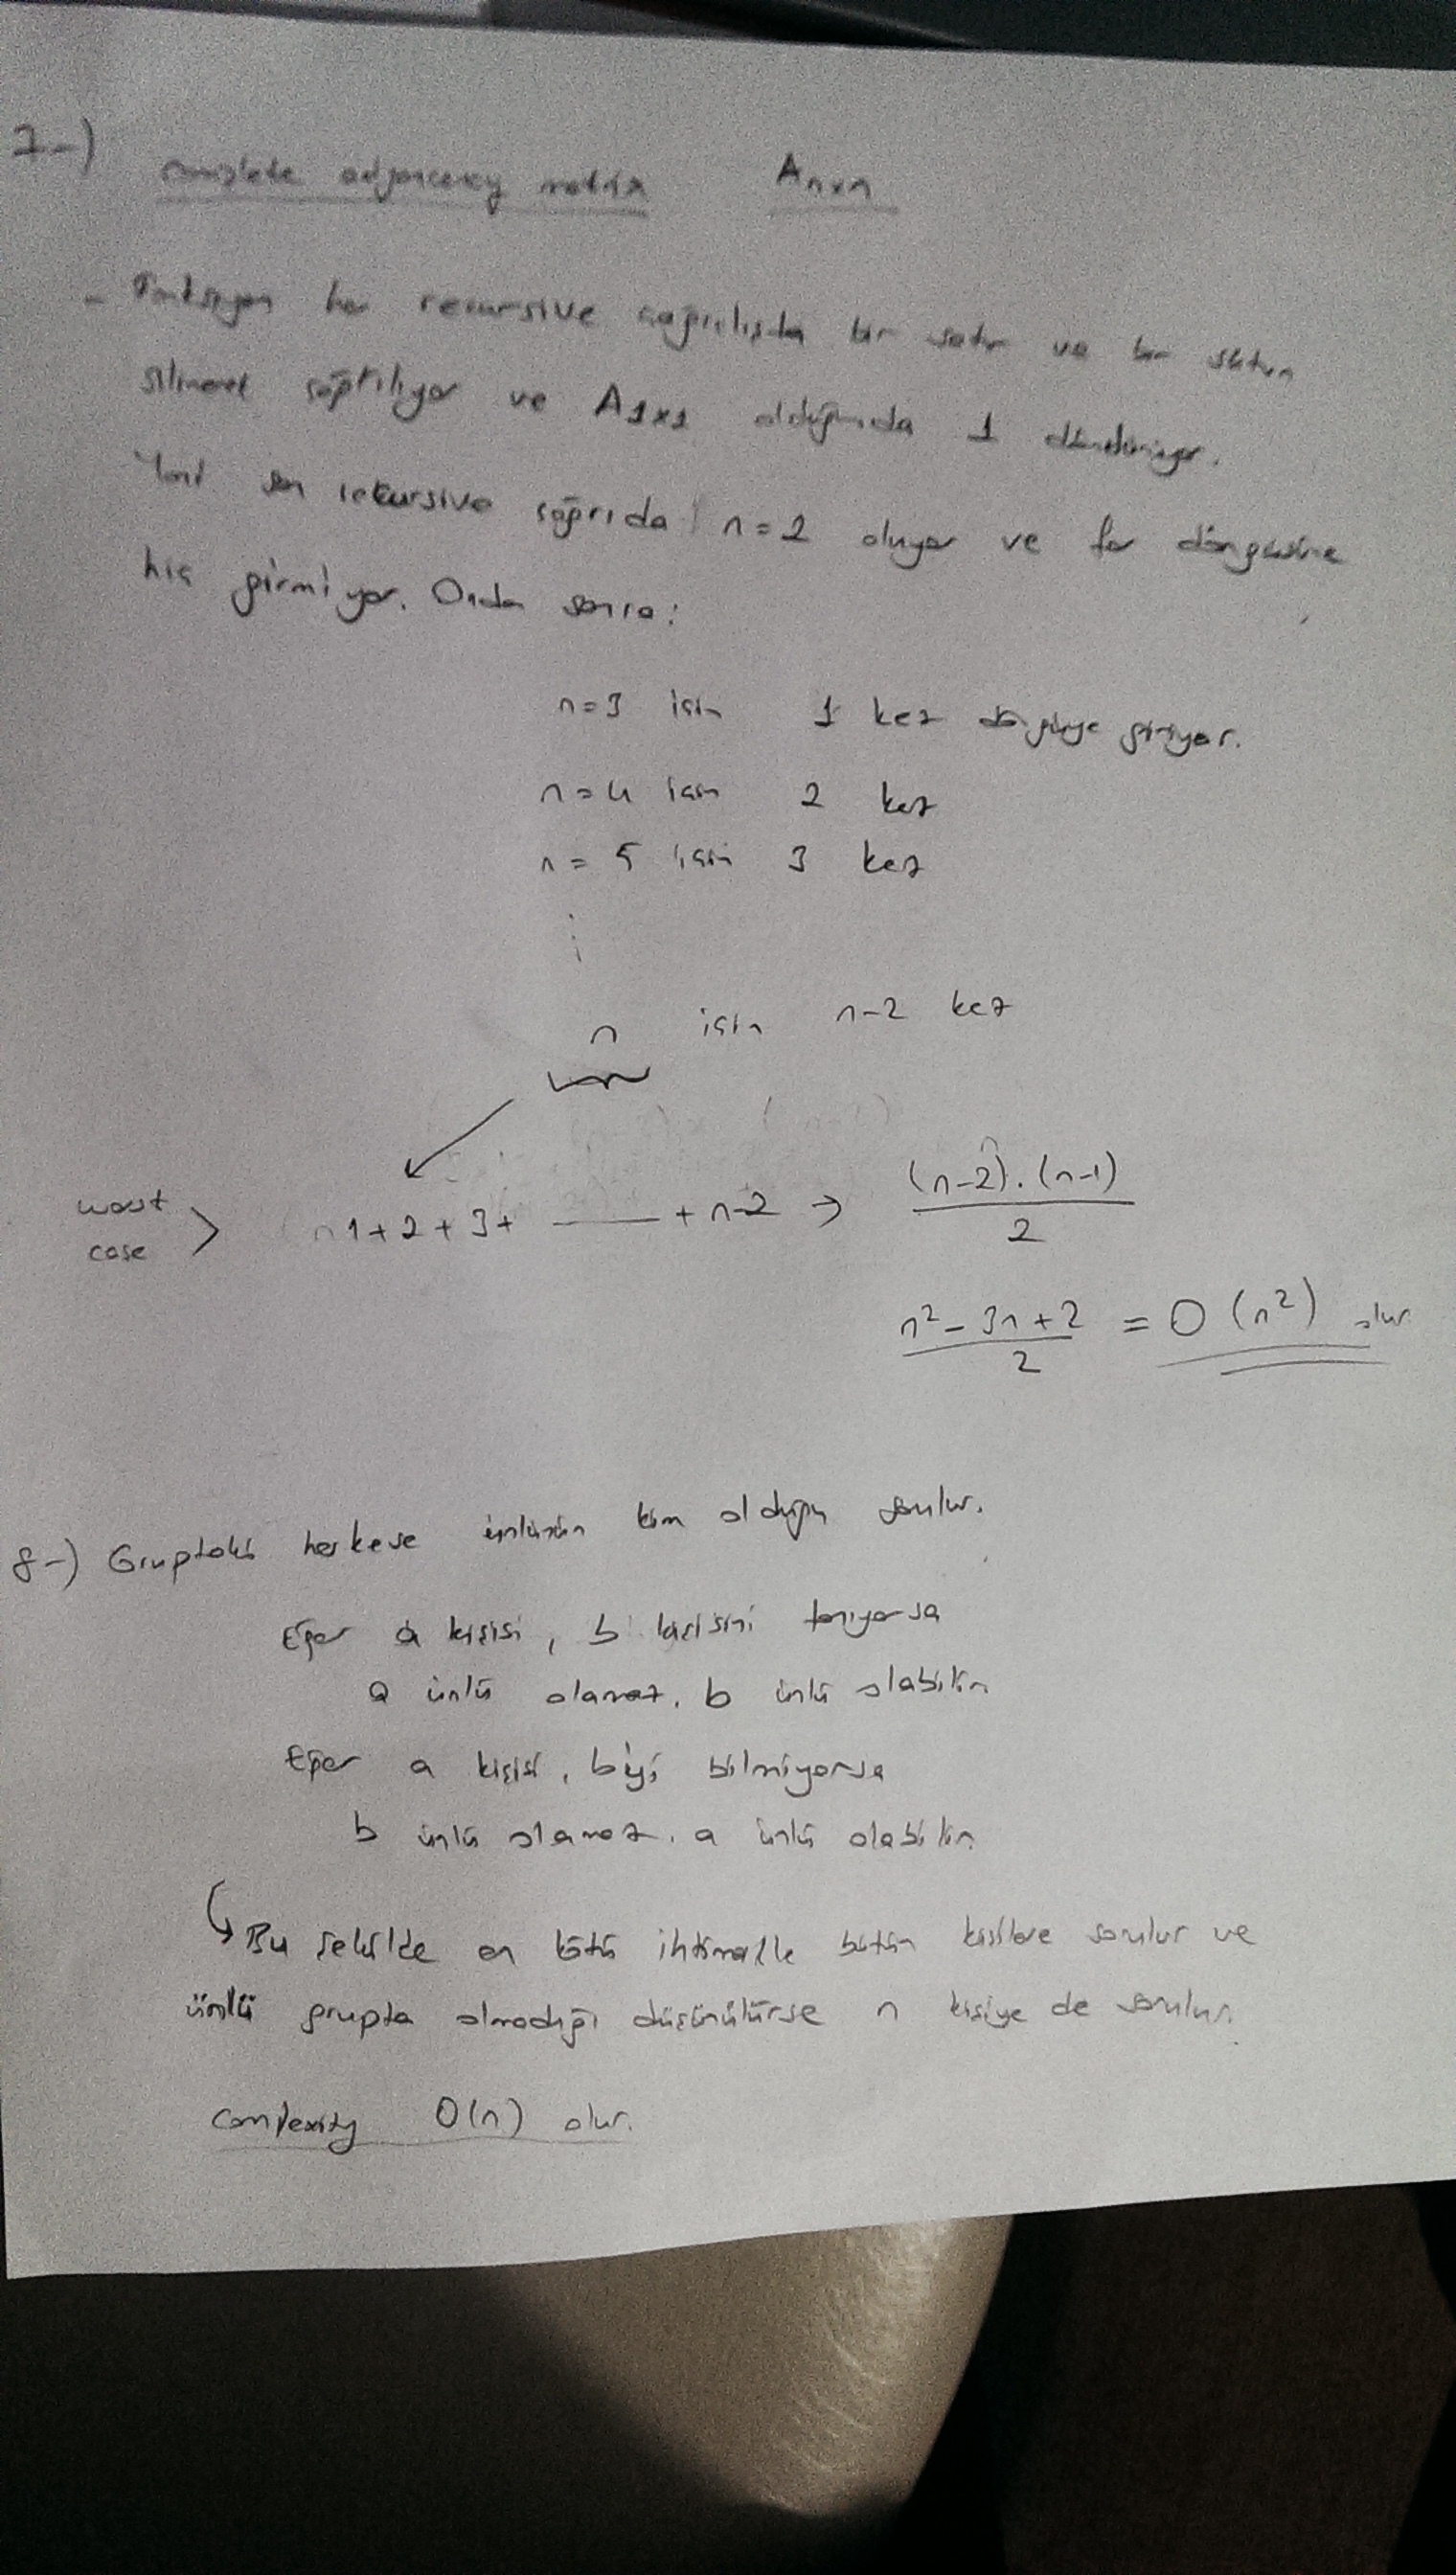 7-)
complete adjacency matrix Anxn
- Fonksiyon her recursive çağrılışta bir satır ve bir sütun
silinerek çağrılıyor ve A1x1 olduğunda 1 döndürüyor.
Yani son rekursive çağrıda n=2 oluyor ve for döngüsüne
hiç girmiyor. Ondan sonra:
n=3 için 1 kez döngüye giriyor.
n=4 için 2 kez
n=5 için 3 kez
n için n-2 kez
worst case > 1+2+3+ ——— + n-2 → (n-2).(n-1) / 2
n²-3n+2 / 2 = O(n²) olur.
8-) Gruptaki herkese ünlünün kim olduğu sorulur.
Eğer a kişisi, b kişisini tanıyorsa
a ünlü olamaz, b ünlü olabilir.
Eğer a kişisi, b'yi bilmiyorsa
b ünlü olamaz, a ünlü olabilir.
Bu şekilde en kötü ihtimalle bütün kişilere sorulur ve
ünlü grupta olmadığı düşünülürse n kişiye de sorulur.
complexity O(n) olur.